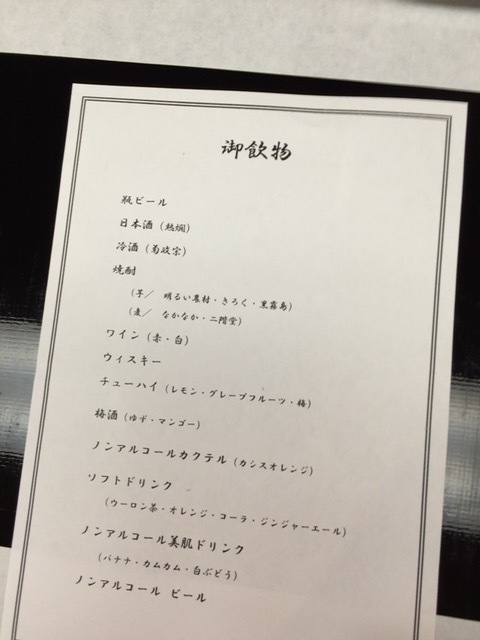 御飲物
瓶ビール
日本酒（熱燗）
冷酒（菊政宗）
焼酎
（芋／　明るい農村・きろく・黒霧島）
（麦／　なかなか・二階堂）
ワイン（赤・白）
ウィスキー
チューハイ（レモン・グレープフルーツ・梅）
梅酒（ゆず・マンゴー）
ノンアルコールカクテル（カシスオレンジ）
ソフトドリンク
（ウーロン茶・オレンジ・コーラ・ジンジャーエール）
ノンアルコール美肌ドリンク
（バナナ・カムカム・白ぶどう）
ノンアルコール ビール